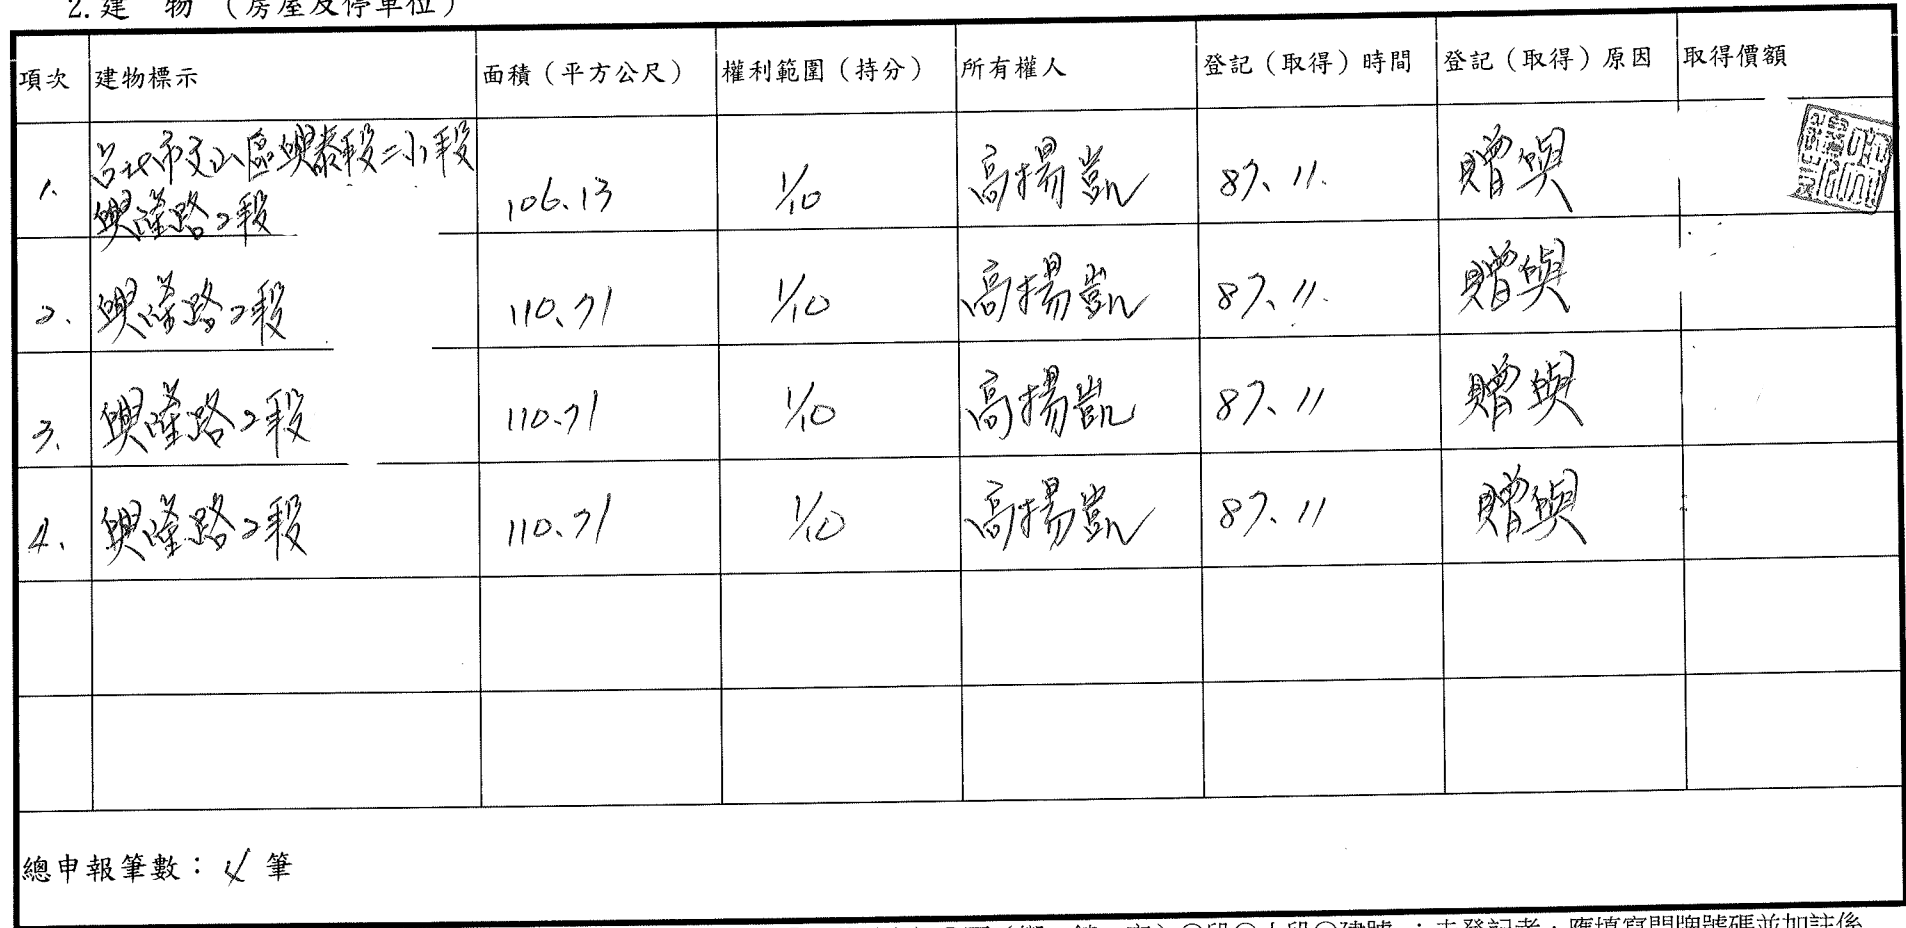 2.建　物（房屋及停車位）
項次 建物標示 面積（平方公尺） 權利範圍（持分） 所有權人 登記（取得）時間 登記（取得）原因 取得價額
台北市文山區興泰段二小段
1. 興隆路2段 106.13 1/10 高揚凱 87.11. 贈與
2. 興隆路2段 110.71 1/10 高揚凱 87.11. 贈與
3. 興隆路2段 110.71 1/10 高揚凱 87.11 贈與
4. 興隆路2段 110.71 1/10 高揚凱 87.11 贈與
總申報筆數：4筆
段○小段○建號；未登記者，應填寫門牌號碼並加註係